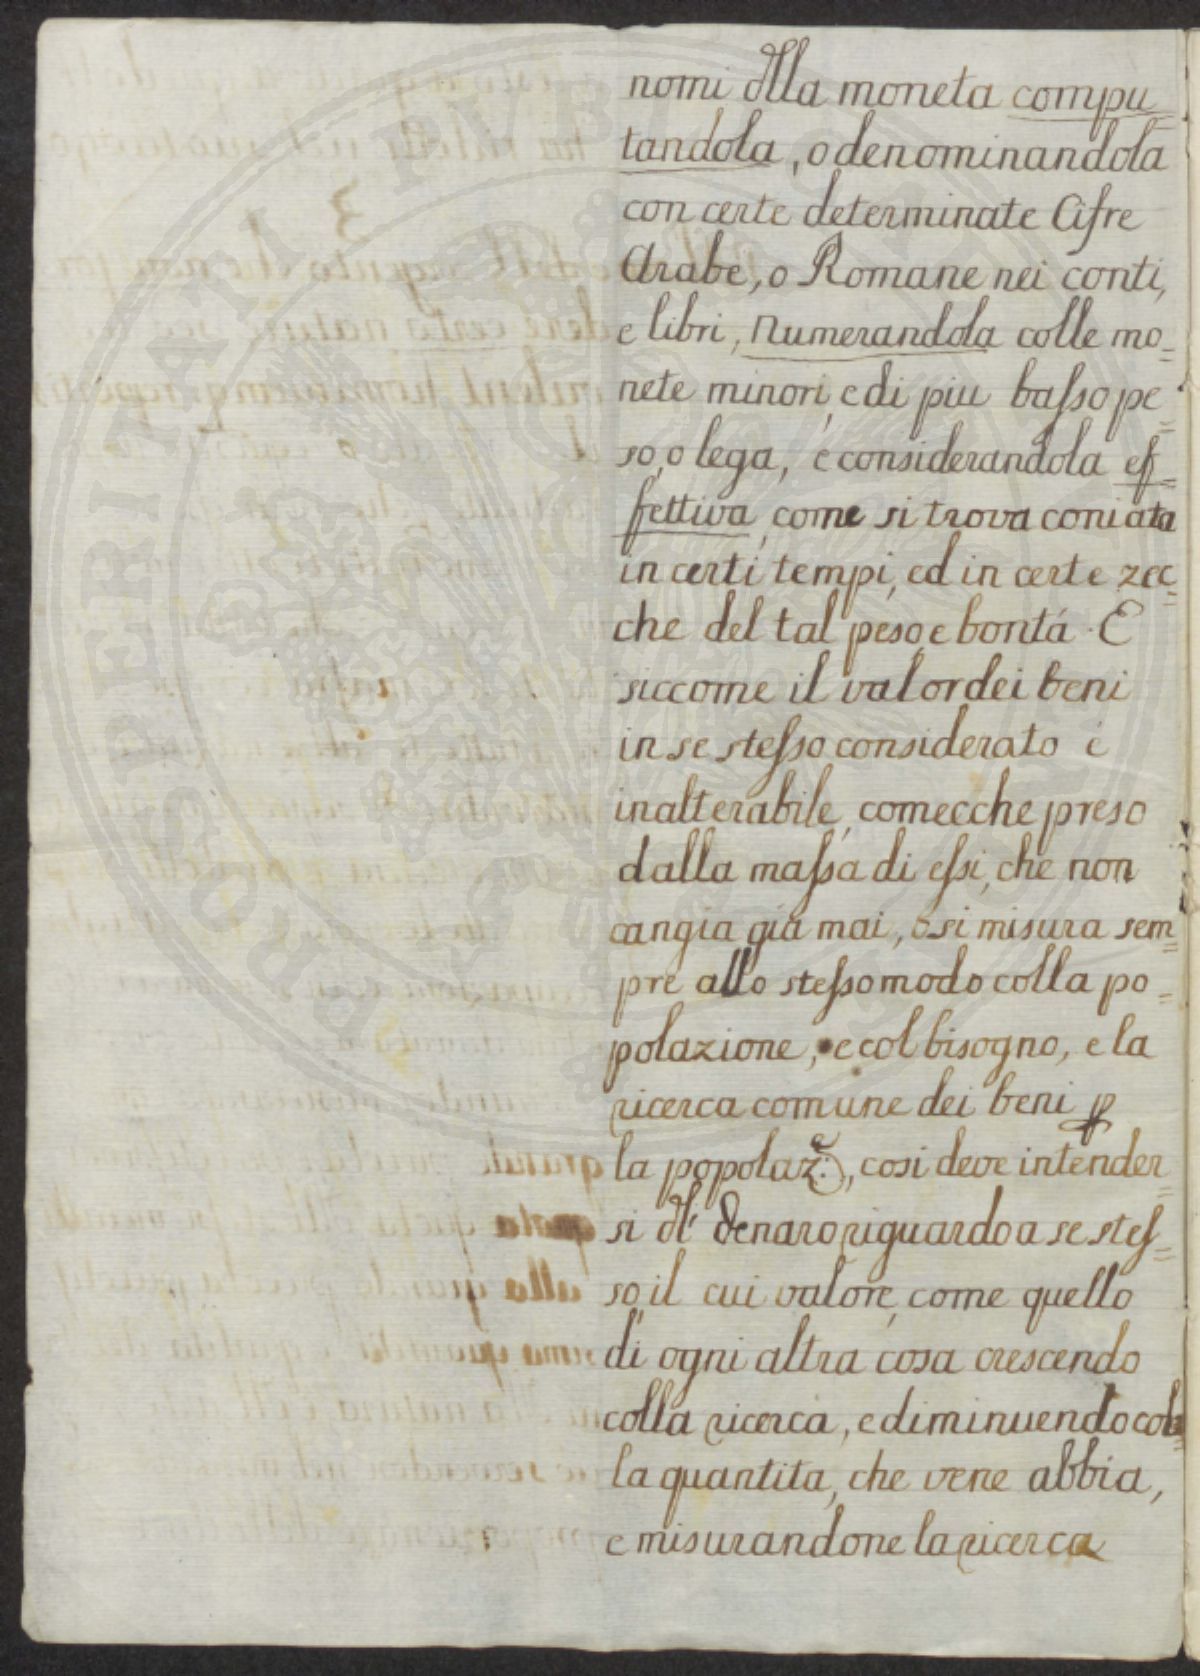 nomi dlla moneta compu
tandola, o denominandola
con certe determinate Cifre
Arabe, o Romane nei conti,
e libri, numerandola colle mo=
nete minori, e di piu basso pe=
so, o lega, e considerandola ef=
fettiva, come si trova coniata
in certi tempi, ed in certe zec=
che del tal peso, e bontá. E
siccome il valor dei beni
in se stesso considerato é
inalterabile, comecche preso
dalla massa di essi, che non
cangia già mai, o si misura sem=
pre allo stesso modo colla po=
polazione, e col bisogno, e la
ricerca comune dei beni p
la popolaz.e, cosi deve intender=
si dl' denaro riguardo a se stes=
so il cui valore, come quello
di ogni altra cosa crescendo
colla ricerca, e diminuendo col=
la quantita, che vene abbia,
e misurandone la ricerca
PROSPERITATI PUBLICAE